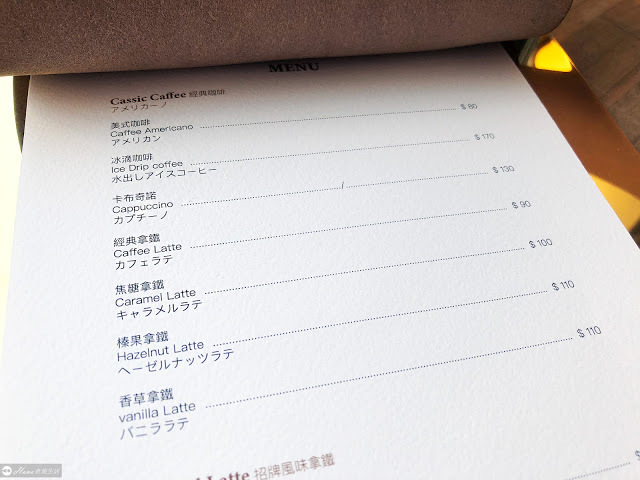 MENU
Cassic Caffee 經典咖啡
アメリカーノ
美式咖啡
Caffee Americano $ 80
アメリカン
冰滴咖啡
Ice Drip coffee $ 170
水出しアイスコーヒー
卡布奇諾
Cappuccino / $ 130
カプチーノ
經典拿鐵
Caffee Latte $ 90
カフェラテ
焦糖拿鐵
Caramel Latte $ 100
キャラメルラテ
榛果拿鐵
Hazelnut Latte $ 110
ヘーゼルナッツラテ
香草拿鐵
vanilla Latte $ 110
バニララテ
Latte 招牌風味拿鐵
$